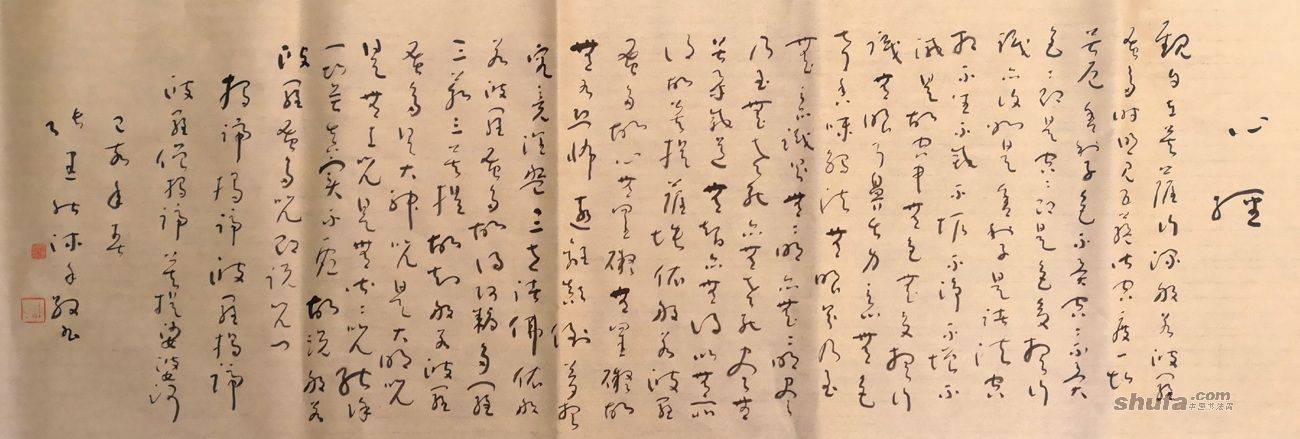 心經
觀自在菩薩行深般若波羅
蜜多時照見五蘊皆空度一切
苦厄舍利子色不異空空不異
色色即是空空即是色受想行
識亦復如是舍利子是諸法空
相不生不滅不垢不淨不增不
減是故空中無色無受想行
識無眼耳鼻舌身意無色
聲香味觸法無眼界乃至
無意識界無無明亦無無明盡
乃至無老死亦無老死盡無
苦集滅道無智亦無得以無所
得故菩提薩埵依般若波羅
蜜多故心無罣礙無罣礙故
無有恐怖遠離顛倒夢想
究竟涅槃三世諸佛依般
若波羅蜜多故得阿耨多羅
三藐三菩提故知般若波羅
蜜多是大神咒是大明咒
是無上咒是無等等咒能除
一切苦真實不虛故說般若
波羅蜜多咒即說咒曰
揭諦揭諦波羅揭諦
波羅僧揭諦菩提娑婆訶
己亥年春
shufa.com
中国书法网